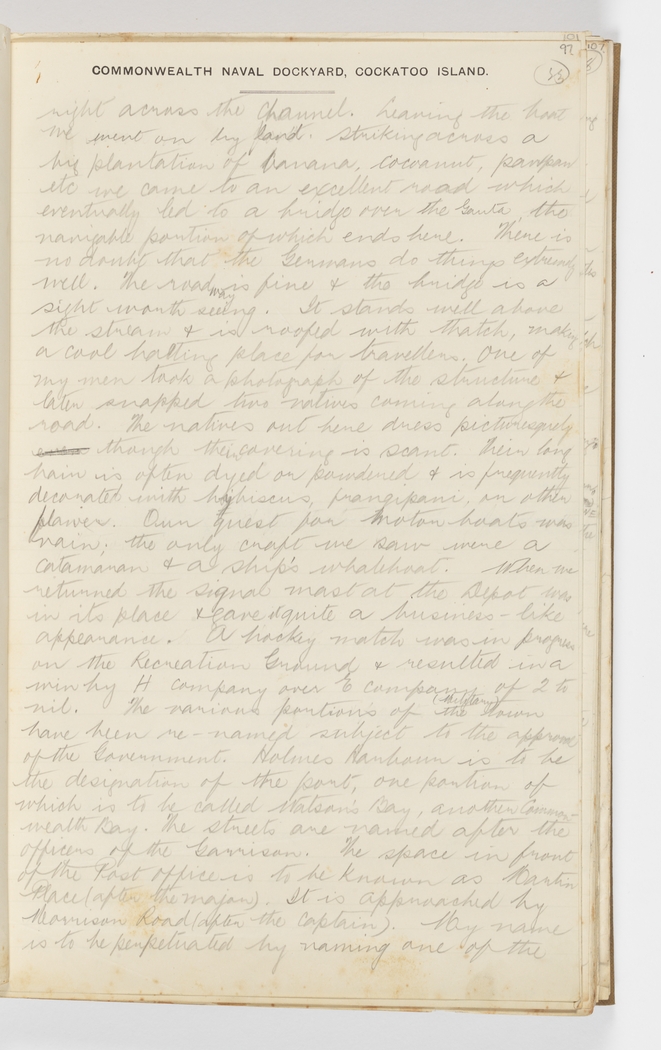 101
92
COMMONWEALTH NAVAL DOCKYARD, COCKATOO ISLAND.
33
right across the channel. Leaving the boat
we went on by land. Striking across a
big plantation of banana, cocoanut, pawpaw
etc we came to an excellent road which
eventually led to a bridge over the the
navigable portion of which ends here. There is
no doubt that the Germans do things extremely
well. The road is fine & the bridge is a
sight worth seeing. It stands well above
the stream & is roofed with thatch, making
a cool halting place for travellers. One of
my men took a photograph of the structure &
later snapped two natives coming along the
road. The natives out here dress picturesquely
though their covering is scant. Their long
hair is often dyed or powdered & is frequently
decorated with hybiscus, frangipani, or other
flower. Our quest for motor boats was
vain; the only craft we saw were a
catamaran & a ship's whaleboat. When we
returned the signal mast at the Depot was
in its place & gave quite a business-like
appearance. A hockey match was in progress
on the Recreation Ground & resulted in a
win by H company over E company of 2 to
nil. The various portions of the (Military) Town
have been re-named subject to the approval
of the Government. Holmes Harbour is to be
the designation of the port, one portion of
which is to be called Watson's Bay, another Common-
wealth Bay. The streets are named after the
officers of the Garrison. The space in front
of the Post office is to be known as Martin
Place (after the major). It is approached by
Morrison Road (after the Captain). My name
is to be perpetuated by naming one of the